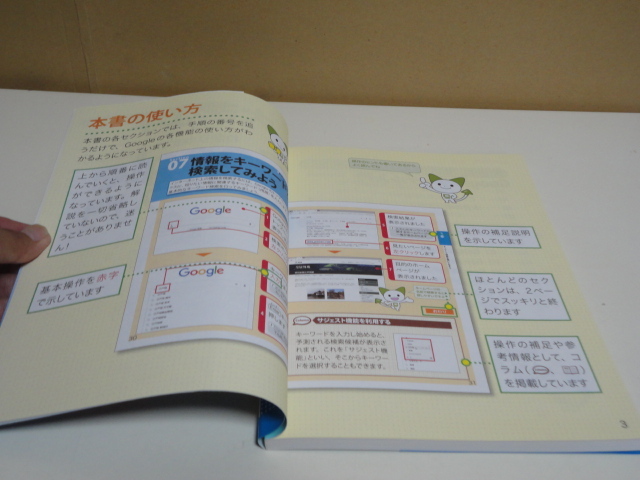 本書の使い方
本書の各セクションでは、手順の番号を追
うだけで、Googleの各機能の使い方がわ
かるようになっています。
上から順番に読
んでいくと、操作
ができるように
なっています。解
説を一切省略し
ていないので、迷
うことがありませ
ん！
基本操作を赤字
で示しています
07 情報をキーワード
検索してみよう
Google
Google
30
検索結果が
表示されました
目的のホーム
ページが
表示されました
サジェスト機能を利用する
キーワードを入力し始めると、
予測される検索候補が表示さ
れます。これを「サジェスト機
能」といい、そこからキーワー
ドを選択することもできます。
操作の補足説明
を示しています
ほとんどのセク
ションは、2ペー
ジでスッキリと終
わります
操作の補足や参
考情報として、コ
ラム(、)
を掲載しています
3